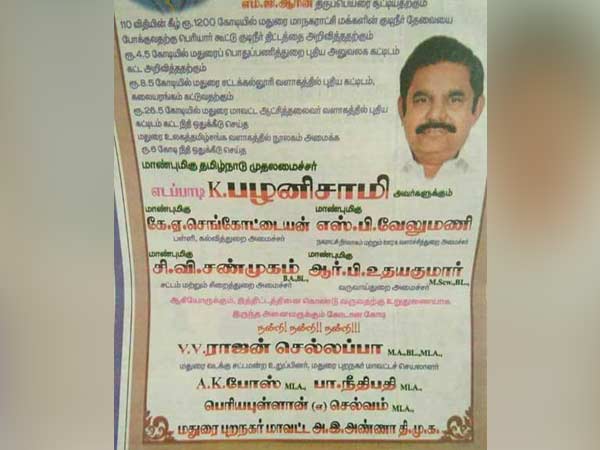 எம்.ஜி.ஆரின் திருப்பெயரை சூட்டியதற்கும்
110 விதியின் கீழ் ரூ.1200 கோடியில் மதுரை மாநகராட்சி மக்களின் குடிநீர் தேவையை
போக்குவதற்கு பெரியார் கூட்டு குடிநீர் திட்டத்தை அறிவித்ததற்கும்
ரூ.4.5 கோடியில் மதுரைப் பொதுப்பணித்துறை புதிய அலுவலக கட்டிடம்
கட்ட அறிவித்ததற்கும்
ரூ.8.5 கோடியில் மதுரை சட்டக்கல்லூரி வளாகத்தில் புதிய கட்டிடம்,
கலையரங்கம் கட்டுவதற்கும்
ரூ.26.5 கோடியில் மதுரை மாவட்ட ஆட்சித்தலைவர் வளாகத்தில் புதிய
கட்டிடம் கட்ட நிதி ஒதுக்கீடு செய்த
மதுரை உலகத்தமிழ்சங்க வளாகத்தில் நூலகம் அமைக்க
ரூ.6 கோடி நிதி ஒதுக்கீடு செய்த
மாண்புமிகு தமிழ்நாடு முதலமைச்சர்
எடப்பாடி K.பழனிசாமி அவர்களுக்கும்
மாண்புமிகு மாண்புமிகு
கே.ஏ.செங்கோட்டையன் எஸ்.பி.வேலுமணி
பள்ளி, கல்வித்துறை அமைச்சர் நகராட்சி நிர்வாகம் மற்றும் ஊரக வளர்ச்சித்துறை அமைச்சர்
மாண்புமிகு மாண்புமிகு
சி.வி.சண்முகம் B.A.,B.L., ஆர்.பி.உதயகுமார் M.Sew.,B.L.,
சட்டம் மற்றும் சிறைத்துறை அமைச்சர் வருவாய்துறை அமைச்சர்
ஆகியோருக்கும், இத்திட்டத்தினை கொண்டு வருவதற்கு உறுதுணையாக
இருந்த அனைவருக்கும் கோடான கோடி
நன்றி! நன்றி!! நன்றி!!!
V.V.ராஜன் செல்லப்பா M.A.,B.L.,MLA.,
மதுரை வடக்கு சட்டமன்ற உறுப்பினர், மதுரை புறநகர் மாவட்டச் செயலாளர்
A.K.போஸ் MLA., பா.நீதிபதி MLA.,
பெரியபுள்ளான் (எ) செல்வம் MLA.,
மதுரை புறநகர் மாவட்ட அ.இ.அண்ணா தி.மு.க.